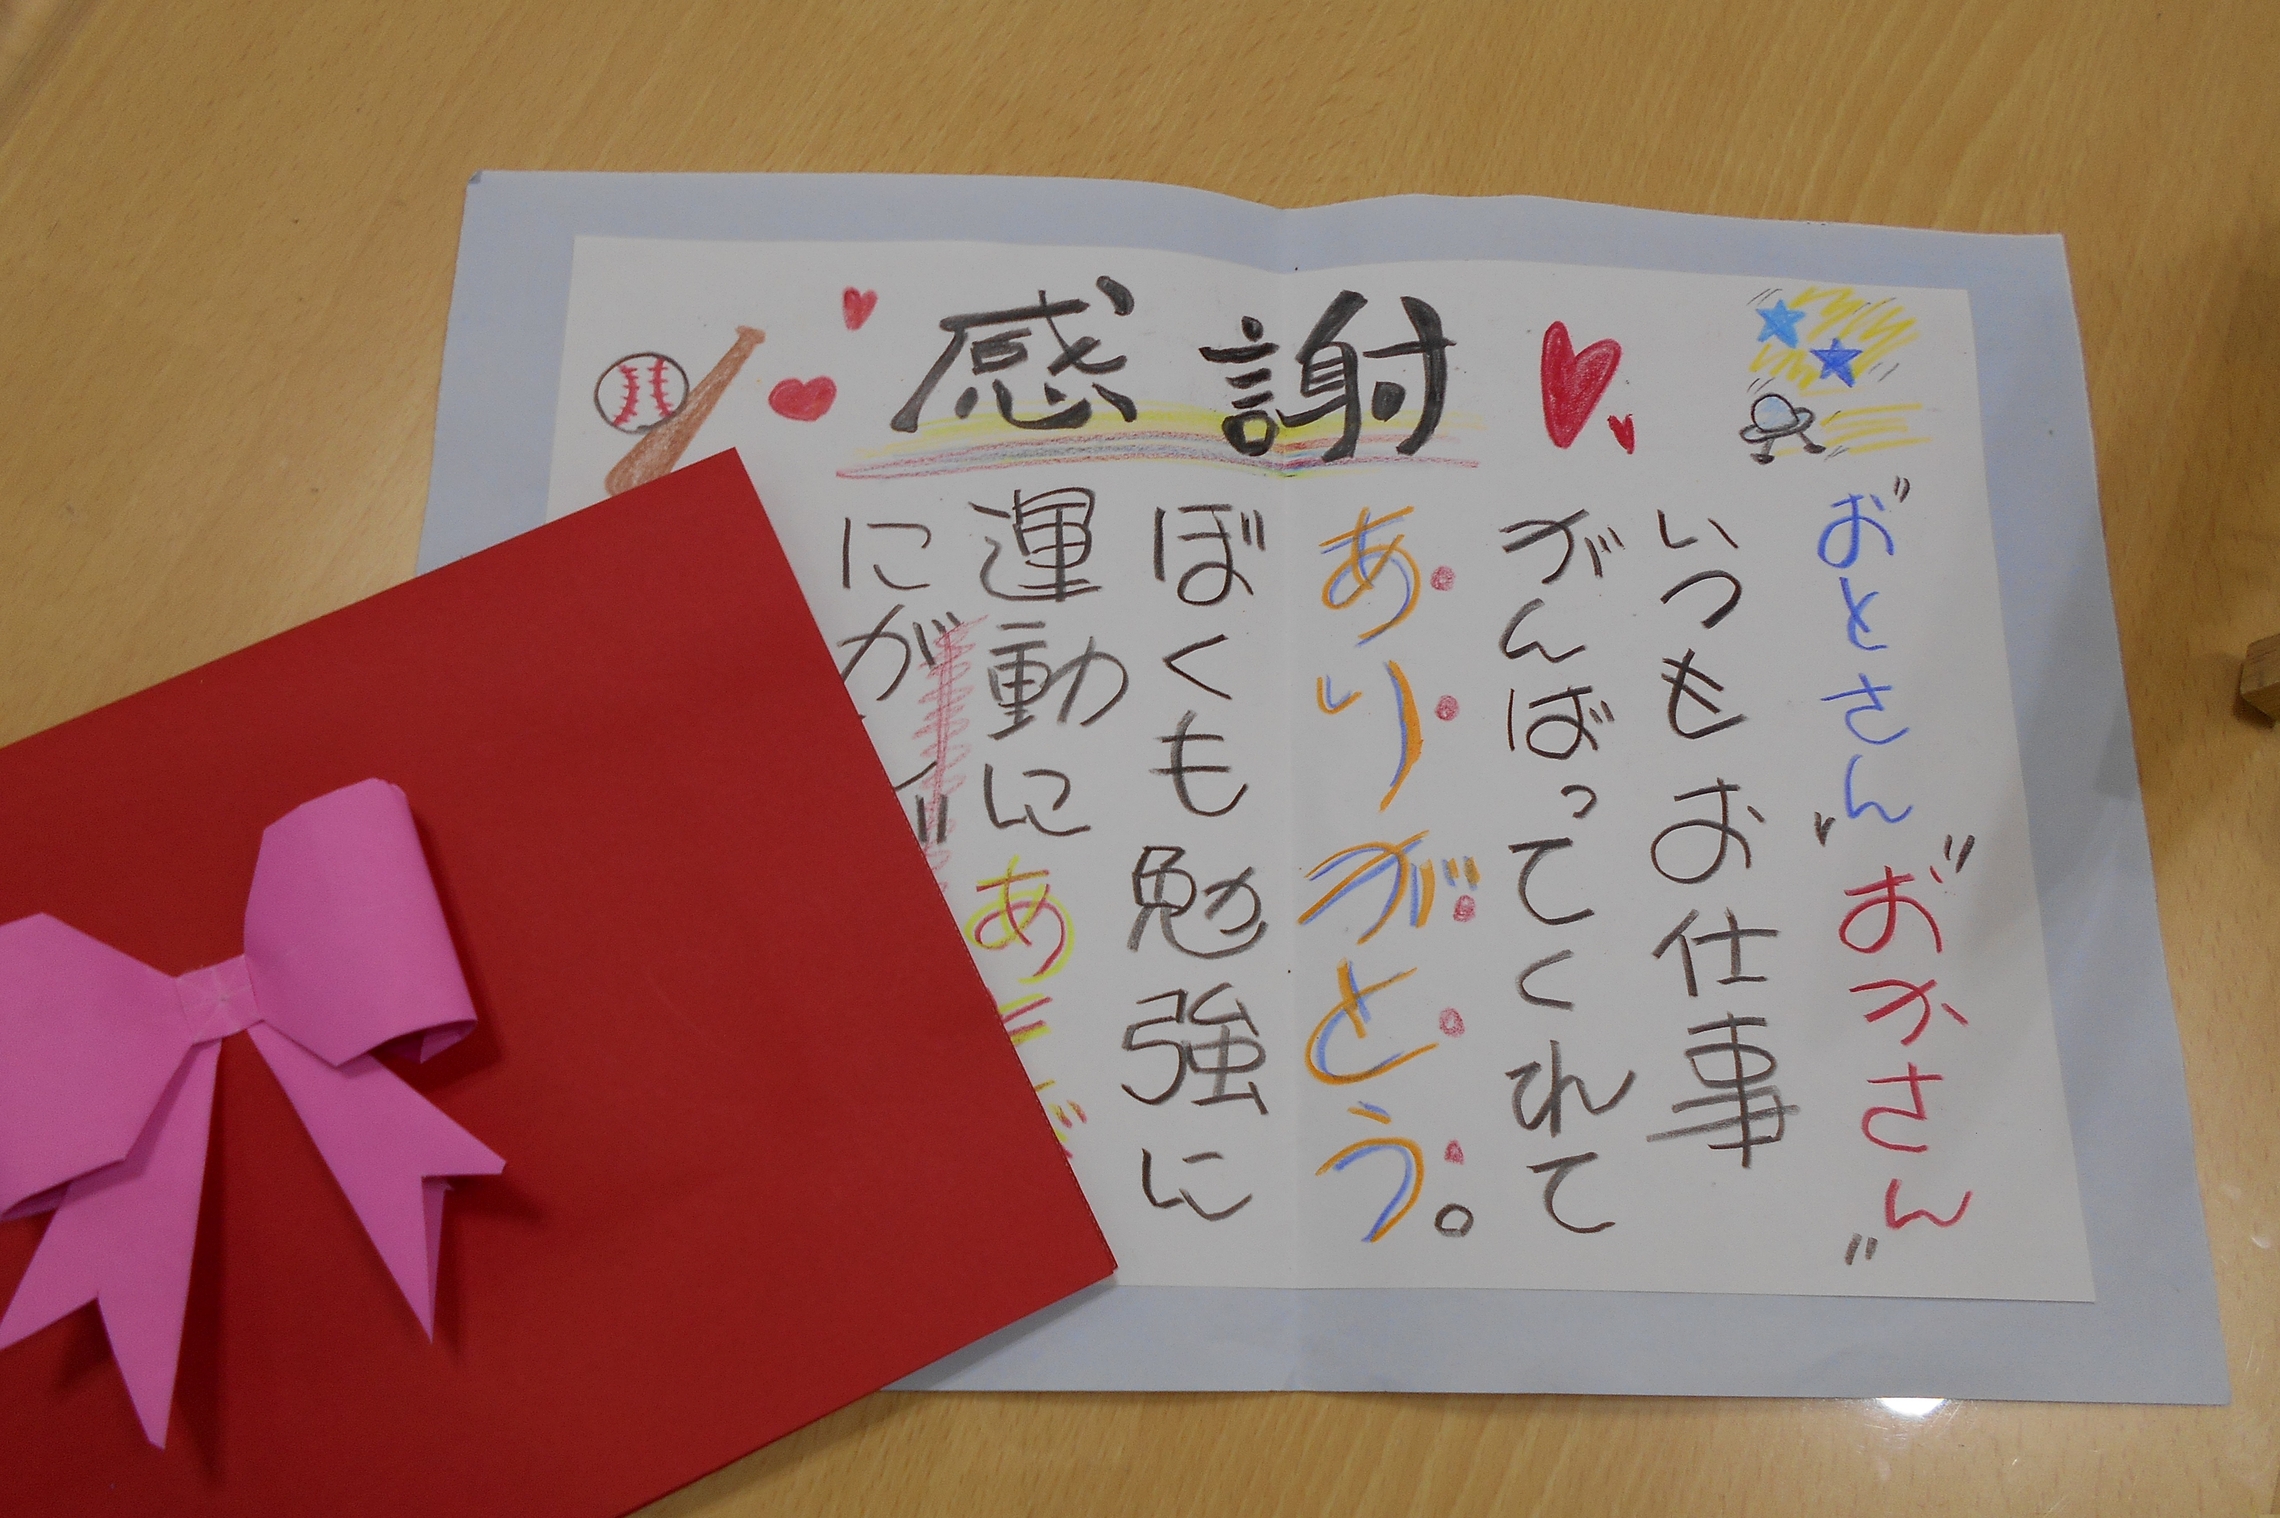 感謝
"おとさん"
"おかさん"
いつもお仕事
がんばってくれて
ありがとう。
ぼくも勉強に
運動に
にが